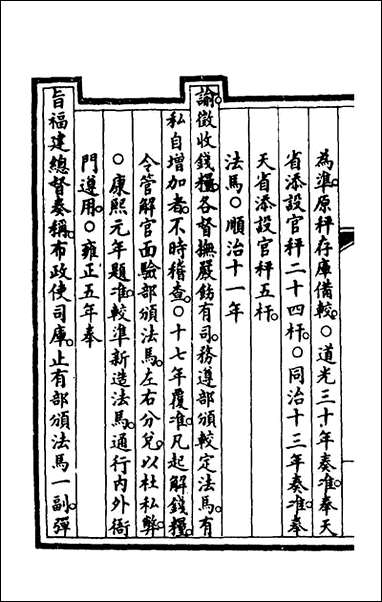 為準原秤存庫備較○道光三十年奏准奉天
省添設官秤二十四杆○同治十三年奏准奉
天省添設官秤五杆
法馬○順治十一年
諭徵收錢糧各督撫嚴飭有司務遵部頒較定法馬有
私自增加者不時稽查○十七年覆准凡起解錢糧
令管解官面驗部頒法馬左右分兌以杜私弊
○康熙元年題准較準新造法馬通行內外衙
門遵用○雍正五年奉
旨福建總督奏稱布政使司庫止有部頒法馬一副彈